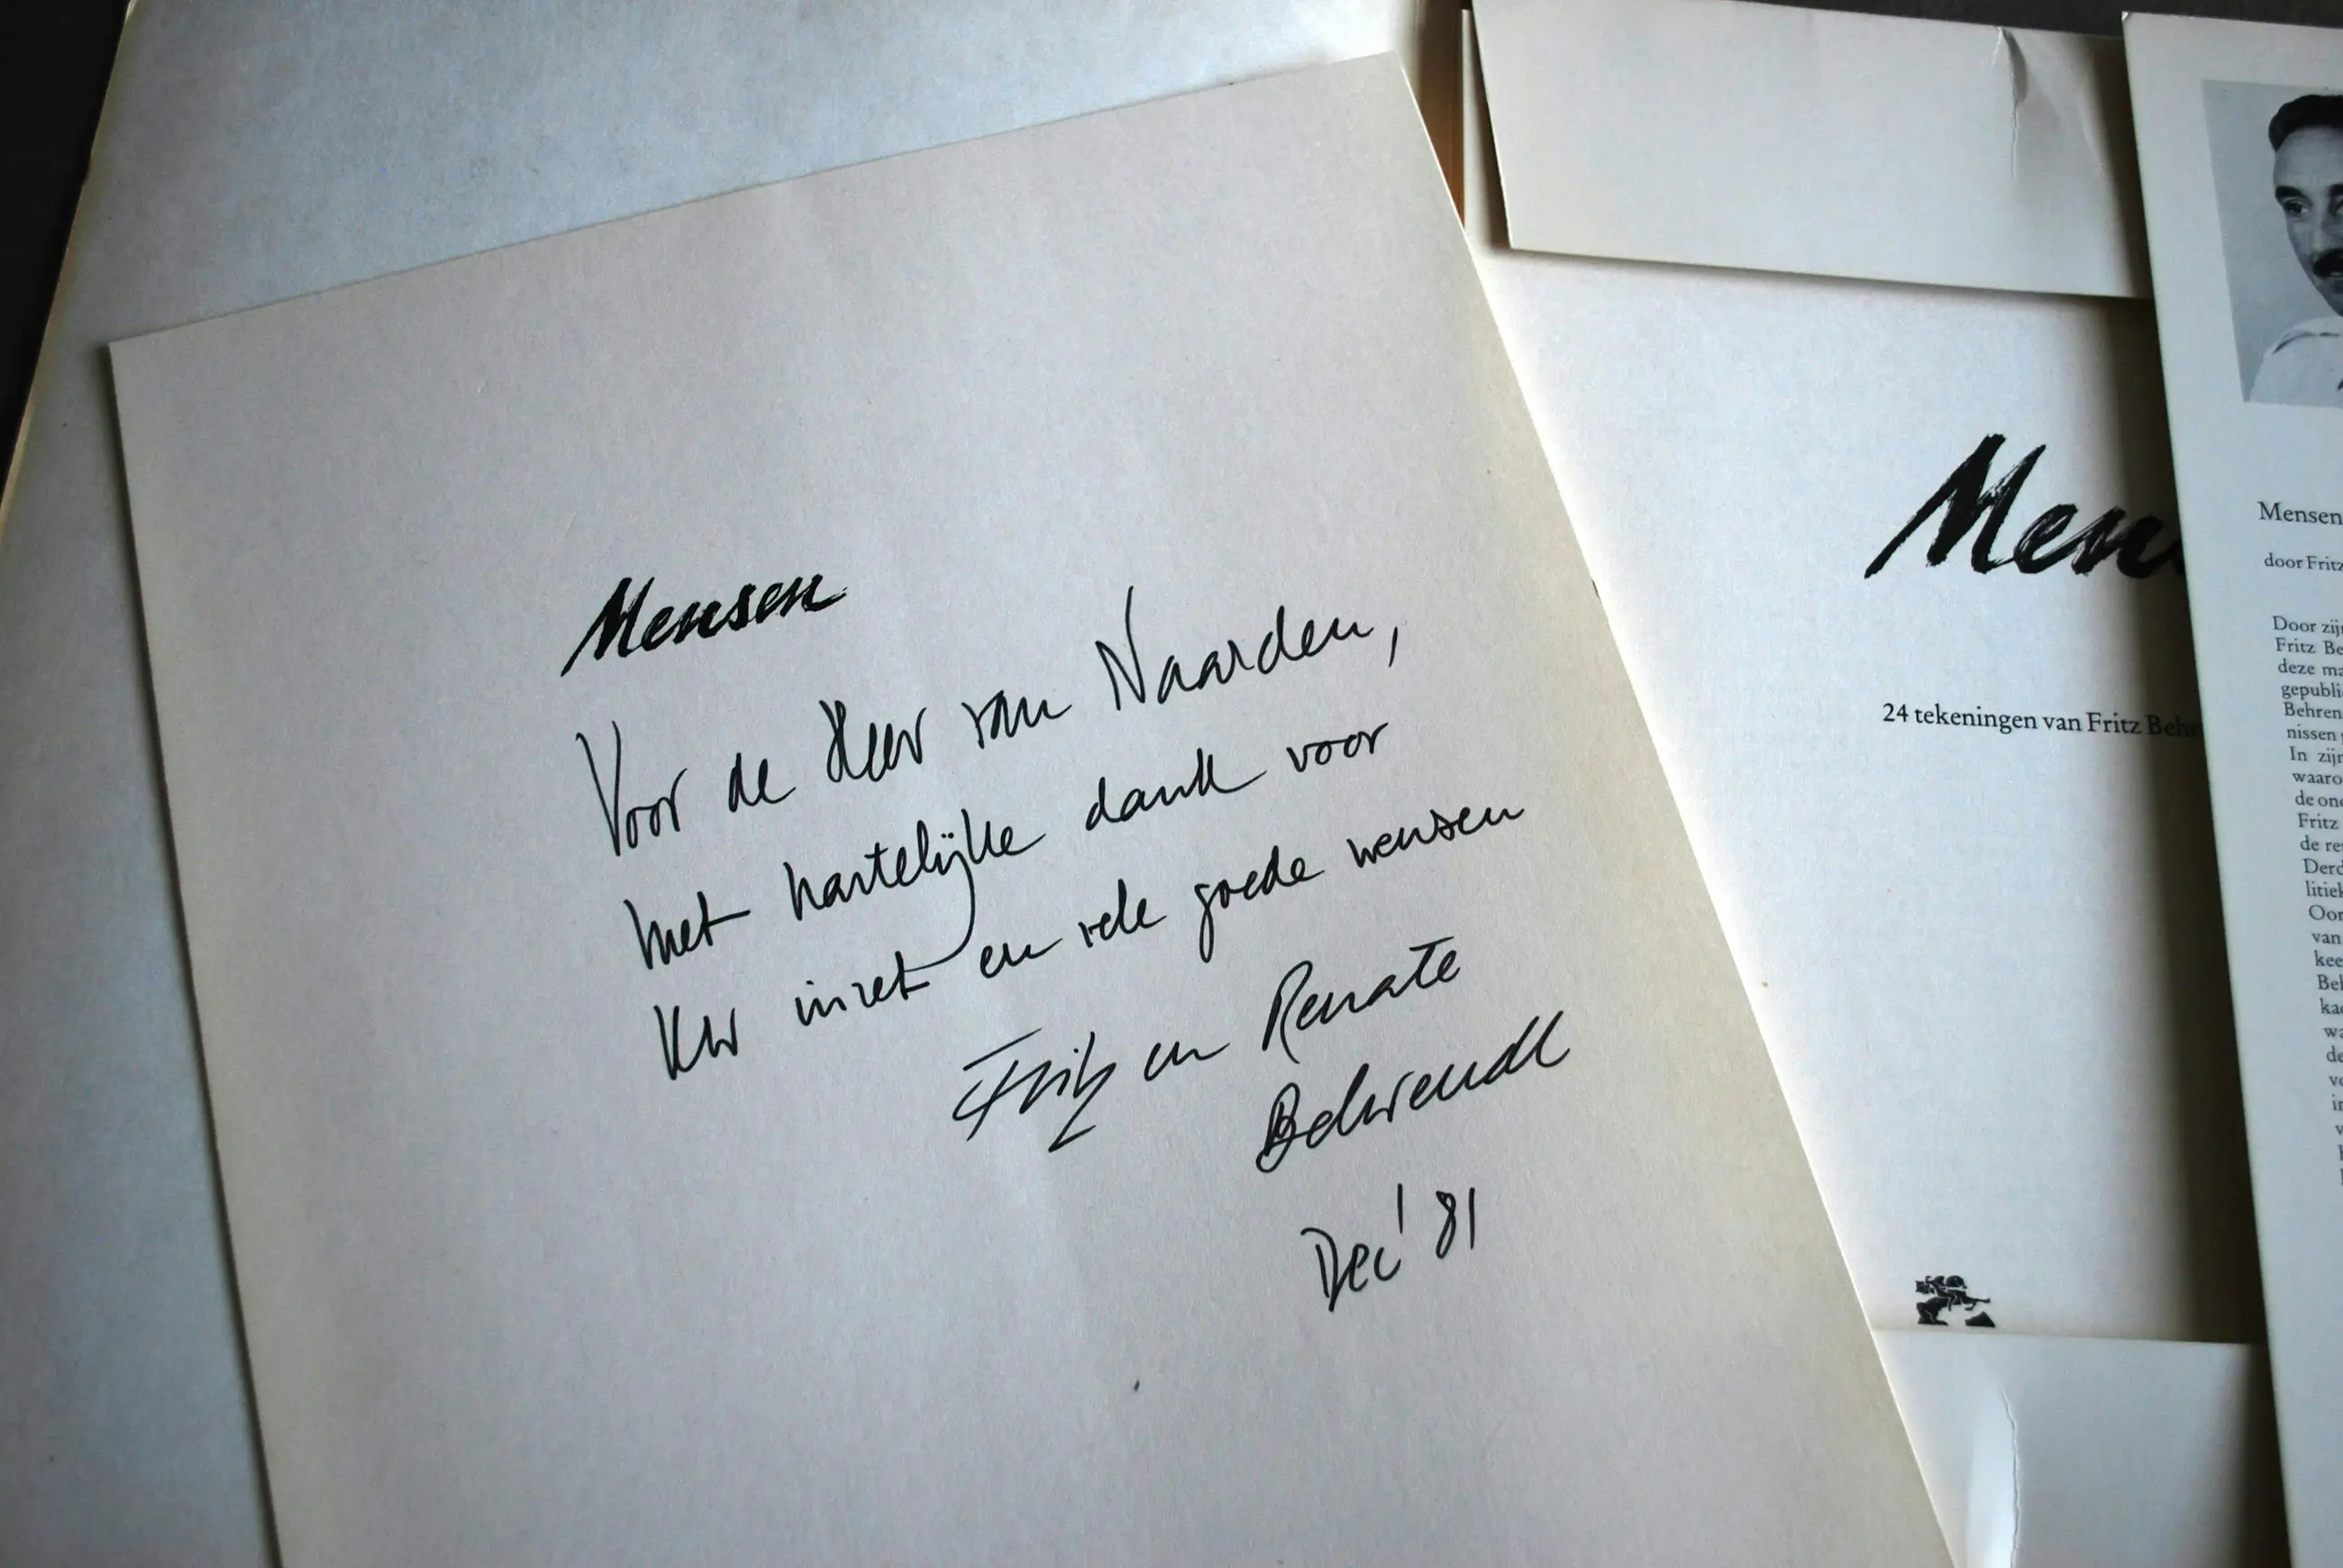 Mensen
Voor de Heer van Naarden,
met hartelijke dank voor
Uw inzet en vele goede wensen
Fritz en Renate
Behrendt
Dec '81
Men
24 tekeningen van Fritz Behr
Mensen
door Fritz
Door zij
Fritz Be
deze ma
gepubli
Behren
nissen
In zijn
waaro
de ond
Fritz
de re
Derd
litiek
Oor
van
kee
Beh
ka
wa
de
vo
in
v